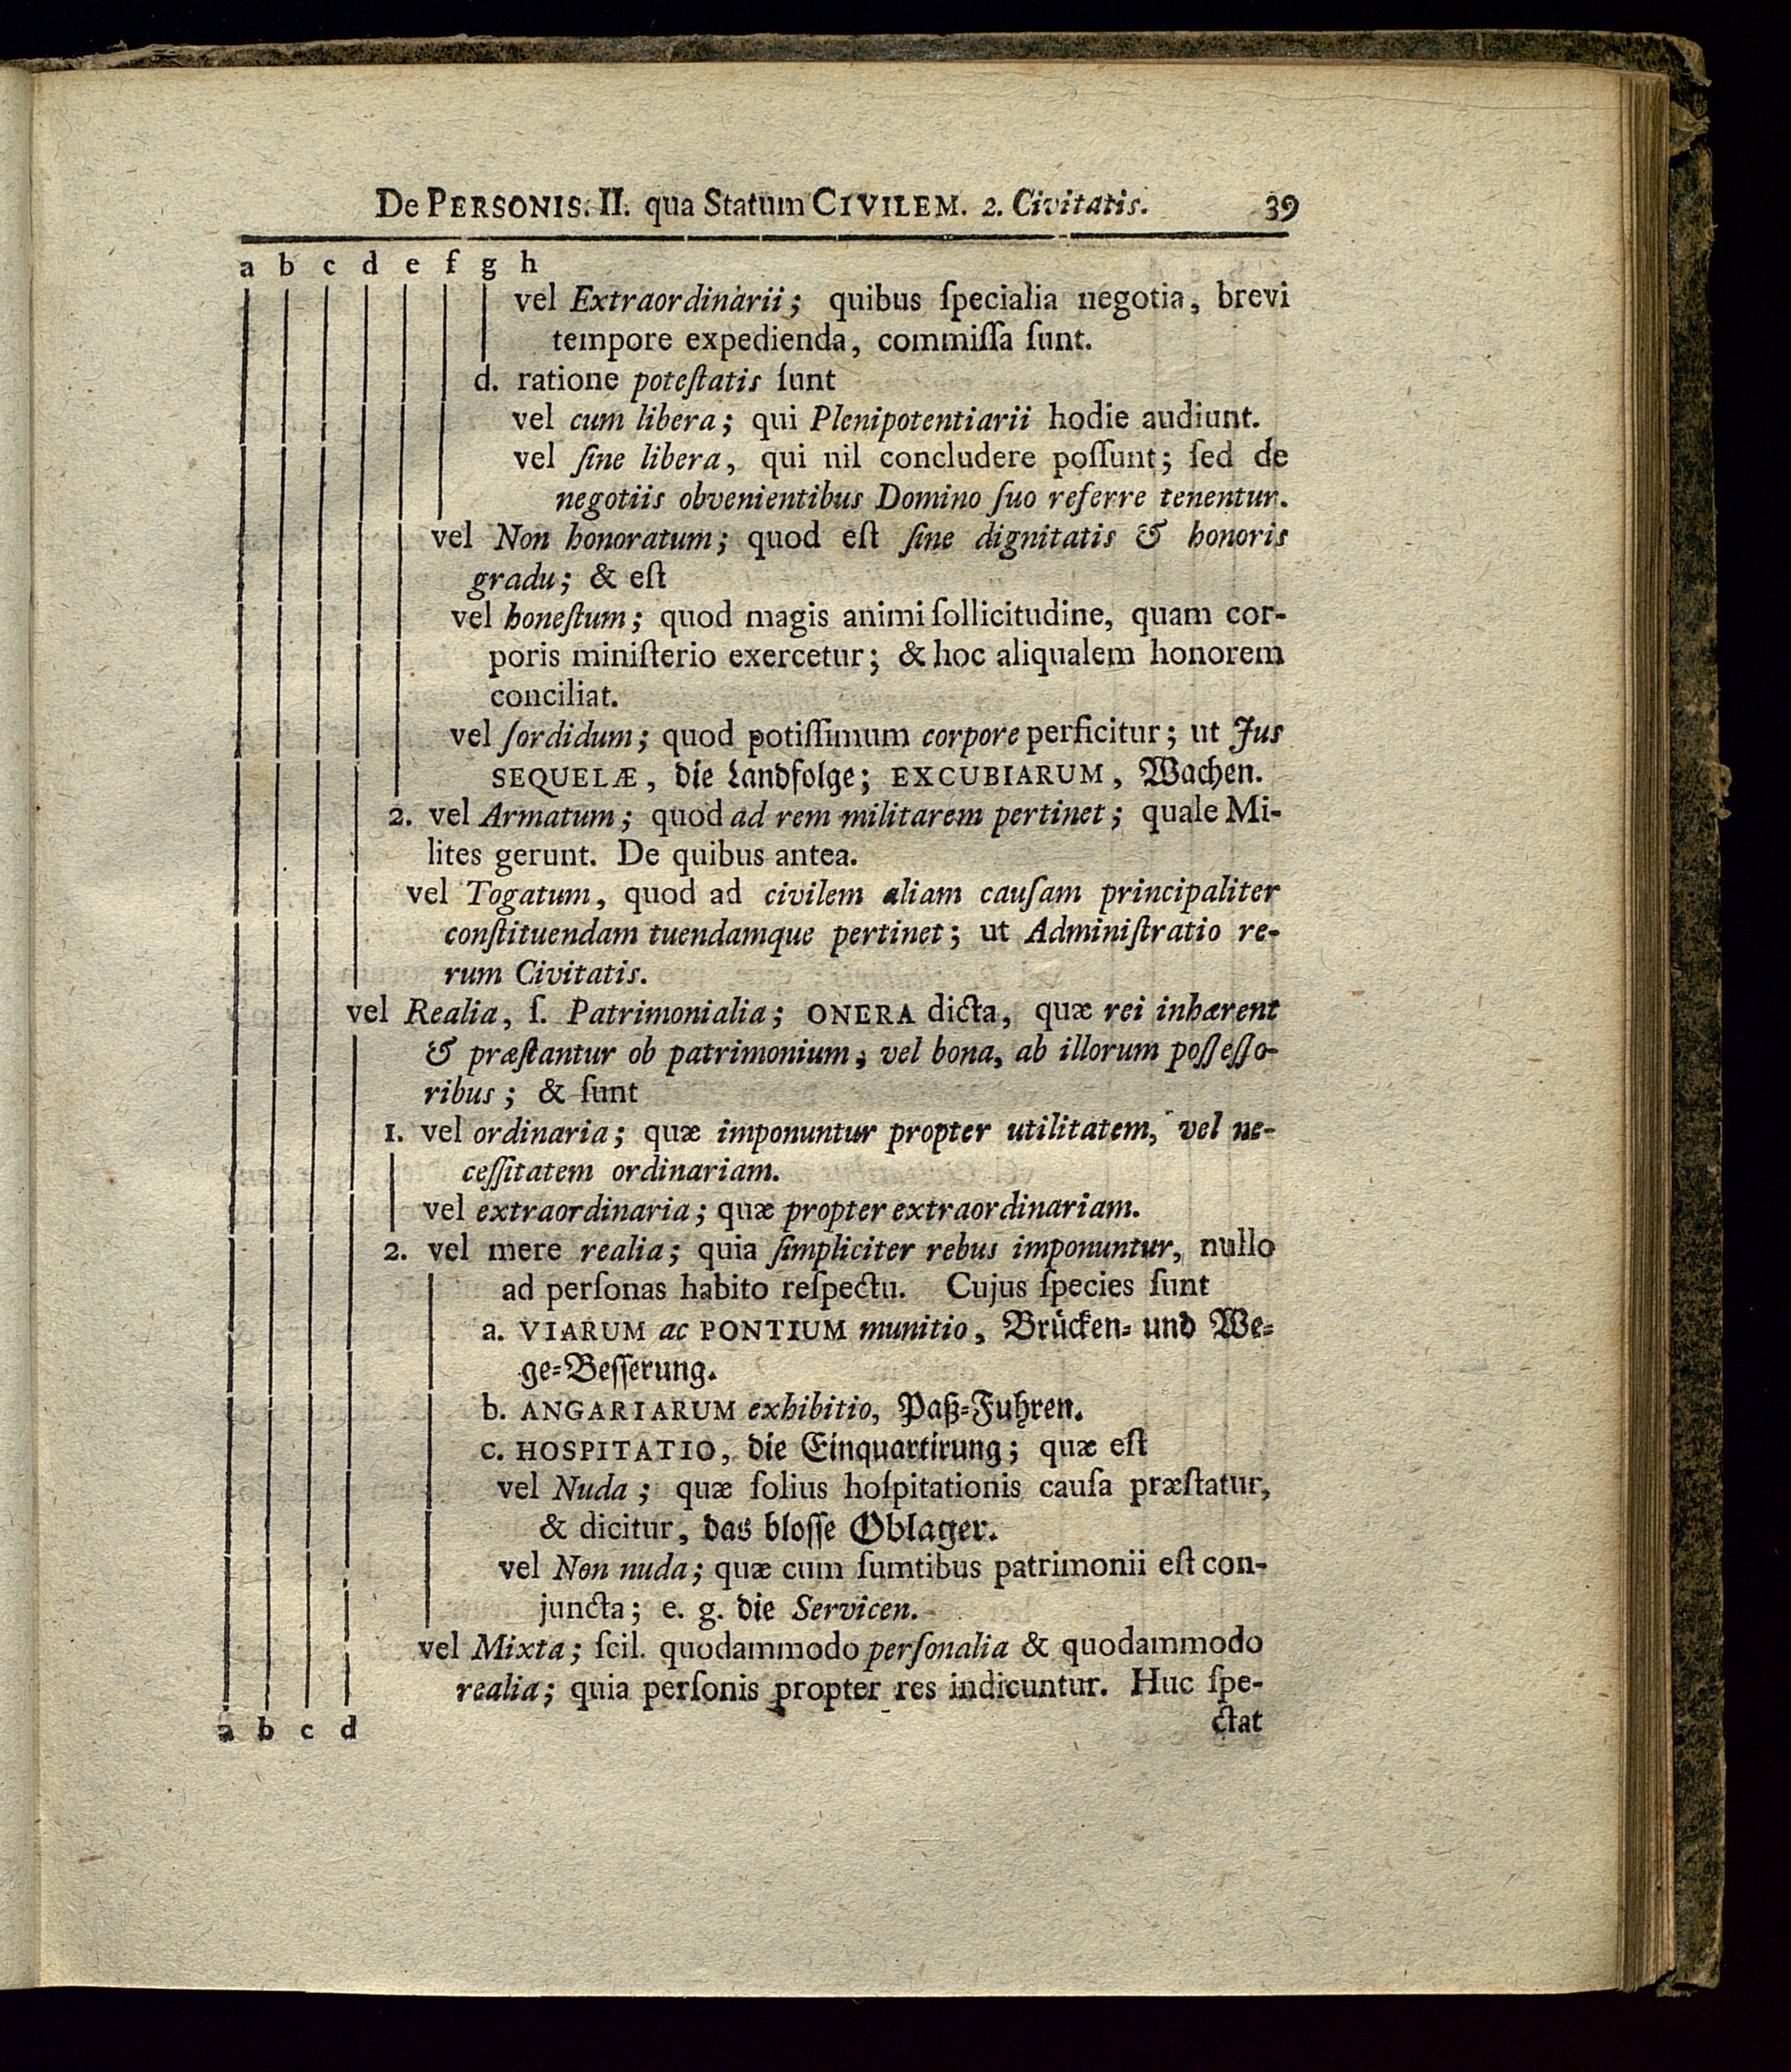 De PERSONIS. II. qua Statum CIVILEM. 2. Civitatis. 39
a b c d e f g h
vel Extraordinarii; quibus ſpecialia negotia, brevi
tempore expedienda, commiſſa ſunt.
d. ratione poteſtatis ſunt
vel cum libera; qui Plenipotentiarii hodie audiunt.
vel ſine libera, qui nil concludere poſſunt; ſed de
negotiis obvenientibus Domino ſuo referre tenentur.
vel Non honoratum; quod eſt ſine dignitatis & honoris
gradu; & eſt
vel honeſtum; quod magis animi ſollicitudine, quam cor-
poris miniſterio exercetur; & hoc aliqualem honorem
conciliat.
vel ſordidum; quod potiſſimum corpore perficitur; ut Jus
SEQUELÆ, die Landfolge; EXCUBIARUM, Wachen.
2. vel Armatum; quod ad rem militarem pertinet; quale Mi-
lites gerunt. De quibus antea.
vel Togatum, quod ad civilem aliam cauſam principaliter
conſtituendam tuendamque pertinet; ut Adminiſtratio re-
rum Civitatis.
vel Realia, ſ. Patrimonialia; ONERA dicta, quæ rei inhærent
& præſtantur ob patrimonium, vel bona, ab illorum poſſeſſo-
ribus; & ſunt
1. vel ordinaria; quæ imponuntur propter utilitatem, vel ne-
ceſſitatem ordinariam.
vel extraordinaria; quæ propter extraordinariam.
2. vel mere realia; quia ſimpliciter rebus imponuntur, nullo
ad perſonas habito reſpectu. Cujus ſpecies ſunt
a. VIARUM ac PONTIUM munitio, Brücken= und We=
ge=Beſſerung.
b. ANGARIARUM exhibitio, Paß=Fuhren.
c. HOSPITATIO, die Einquartirung; quæ eſt
vel Nuda; quæ ſolius hoſpitationis cauſa præſtatur,
& dicitur, das bloſſe Oblager.
vel Non nuda; quæ cum ſumtibus patrimonii eſt con-
juncta; e. g. die Servicen.
vel Mixta; ſcil. quodammodo perſonalia & quodammodo
realia; quia perſonis propter res indicuntur. Huc ſpe-
a b c d ctat